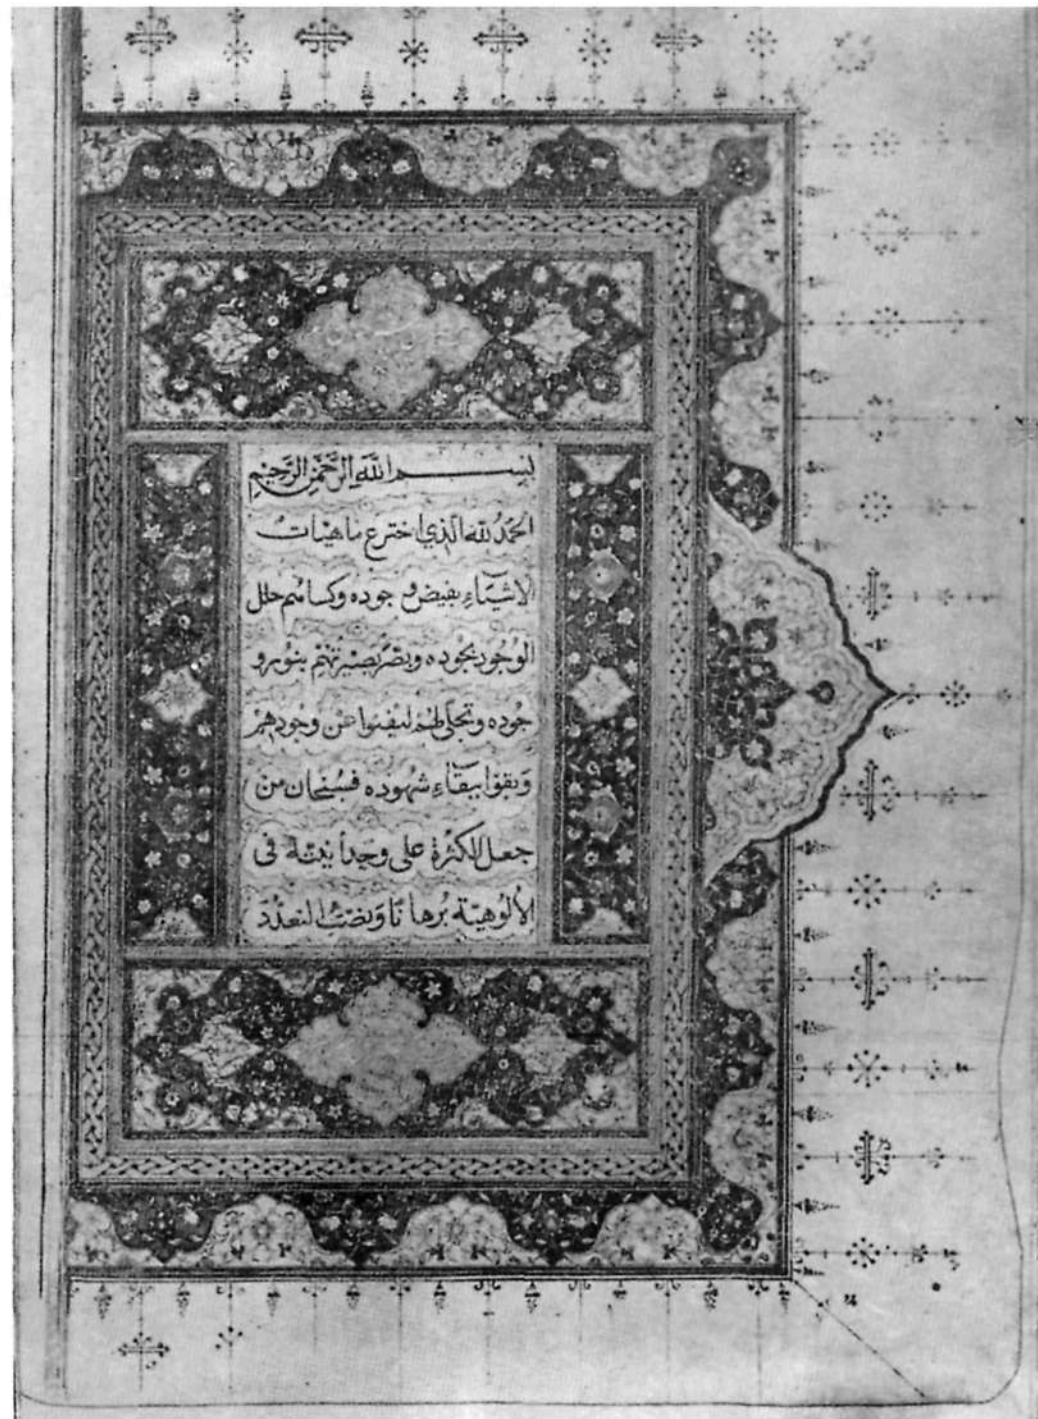 بِسْمِ اللَّهِ الرَّحْمٰنِ الرَّحِيمِ
الحمدُ لله الذي اخترع ماهيات
الاشيآءِ بفيض وجوده وكساهم حلل
الوُجود بجُوده وبصّر بصيرتهم بنُور و
جُوده وتجلّى لهُم ليفنوا عن وجودهم
وَيبقوا ببقآءِ شهُوده فسُبْحان من
جعل الكثرة على وحدانيّة في
الأُلُوهيّة بُرهانًا وَنصَبَ التعدّدَ